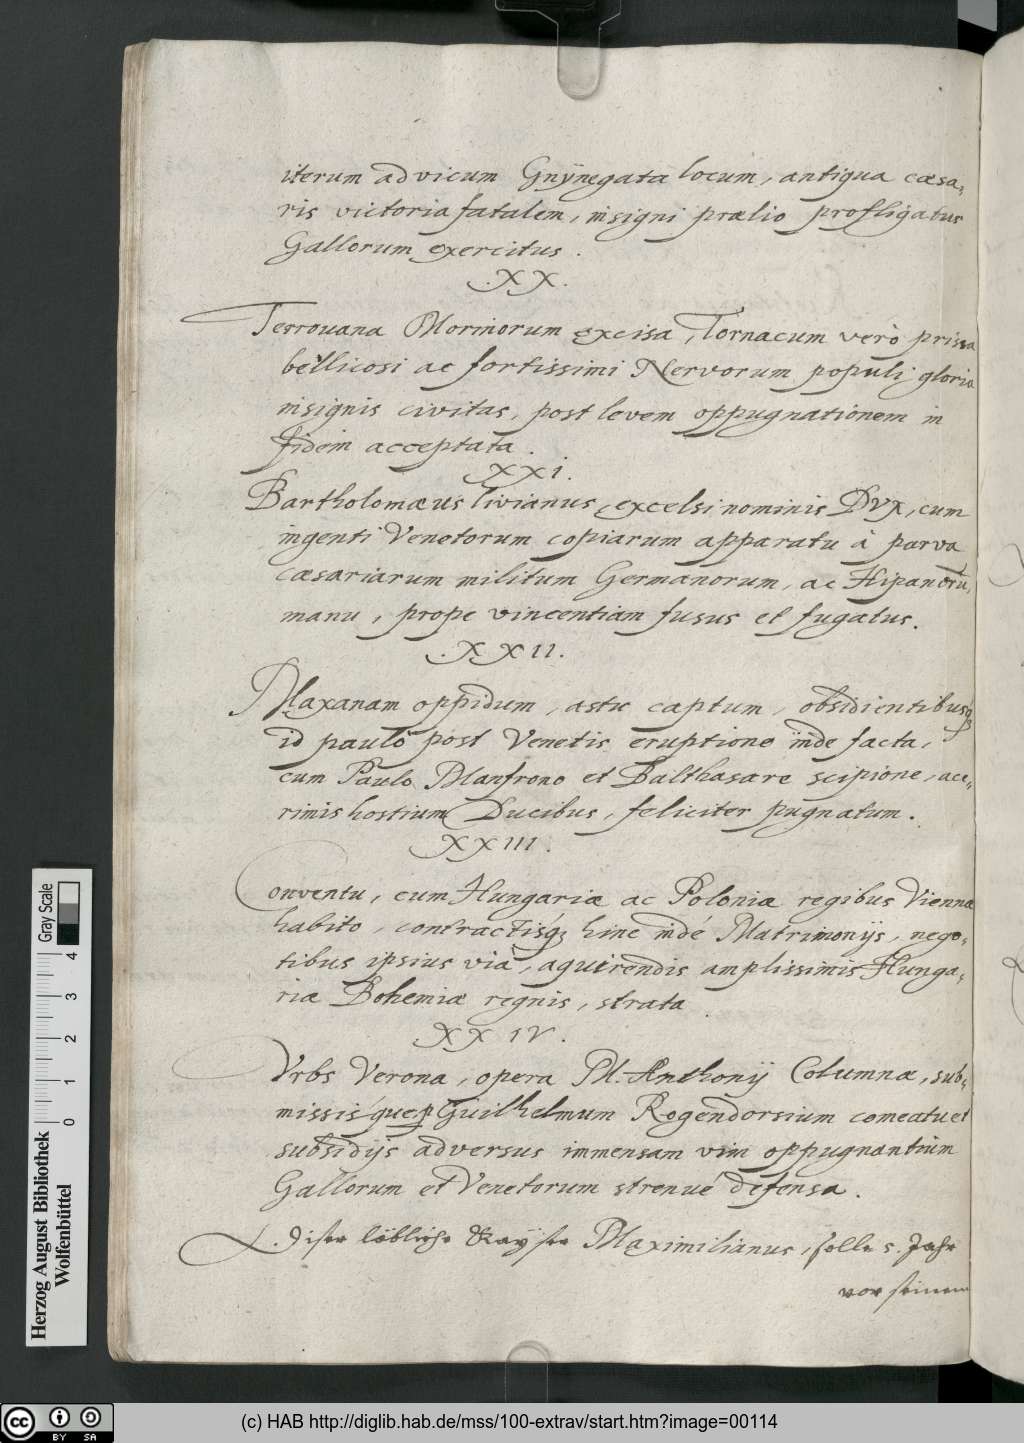 iterum ad vicum Gnÿnegata locum, antiqua cæsa,,
ris victoria fatalem, insigni prælio profligatus
Gallorum exercitus.
.XX.
Terrouana Morinorum excisa, Tornacum verò prisca
bellicosi ac fortissimi Nervorum populi gloria
insignis civitas, post levem oppugnationem in
fidem acceptata.
XXI.
Bartholomæus livianus, excelsi nominis Dvx, cum
ingenti Venetorum copiarum apparatu à parva
cæsariarum militum Germanorum, ac Hipanorũ,
manu, prope vincentiam fusus et fugatus.
.XXII.
Maxanam oppidum, astu captum, obsidientibusq́
id paulò post Venetis eruptione inde facta,
cum Paulo Manfrono et Balthasare scipione, ace,,
rimis hostium Ducibus, feliciter pugnatum.
XXIII.
Conventu, cum Hungariæ ac Poloniæ regibus Viennæ
habito, contractisq́ꝫ hinc indé Matrimonijs, nego,,
tibus ipsius via, aquirendis amplissimis Hunga,,
riæ Bohemiæ regnis, strata.
XXIV.
Vrbs Verona, opera M. Anthonij Columnæ, sub,,
missisq́ue ꝑ Guilhelmum Rogendorsium comeatu et
subsidijs adversus immensam vim oppugnantium
Gallorum et Venetorum strenué defensa.
Diser löbliche Kaÿser Maximilianus, solle 5. Jahr
vor seinem
Gray Scale
0 1 2 3 4
Herzog August Bibliothek
Wolfenbüttel
cc BY SA
(c) HAB http://diglib.hab.de/mss/100-extrav/start.htm?image=00114